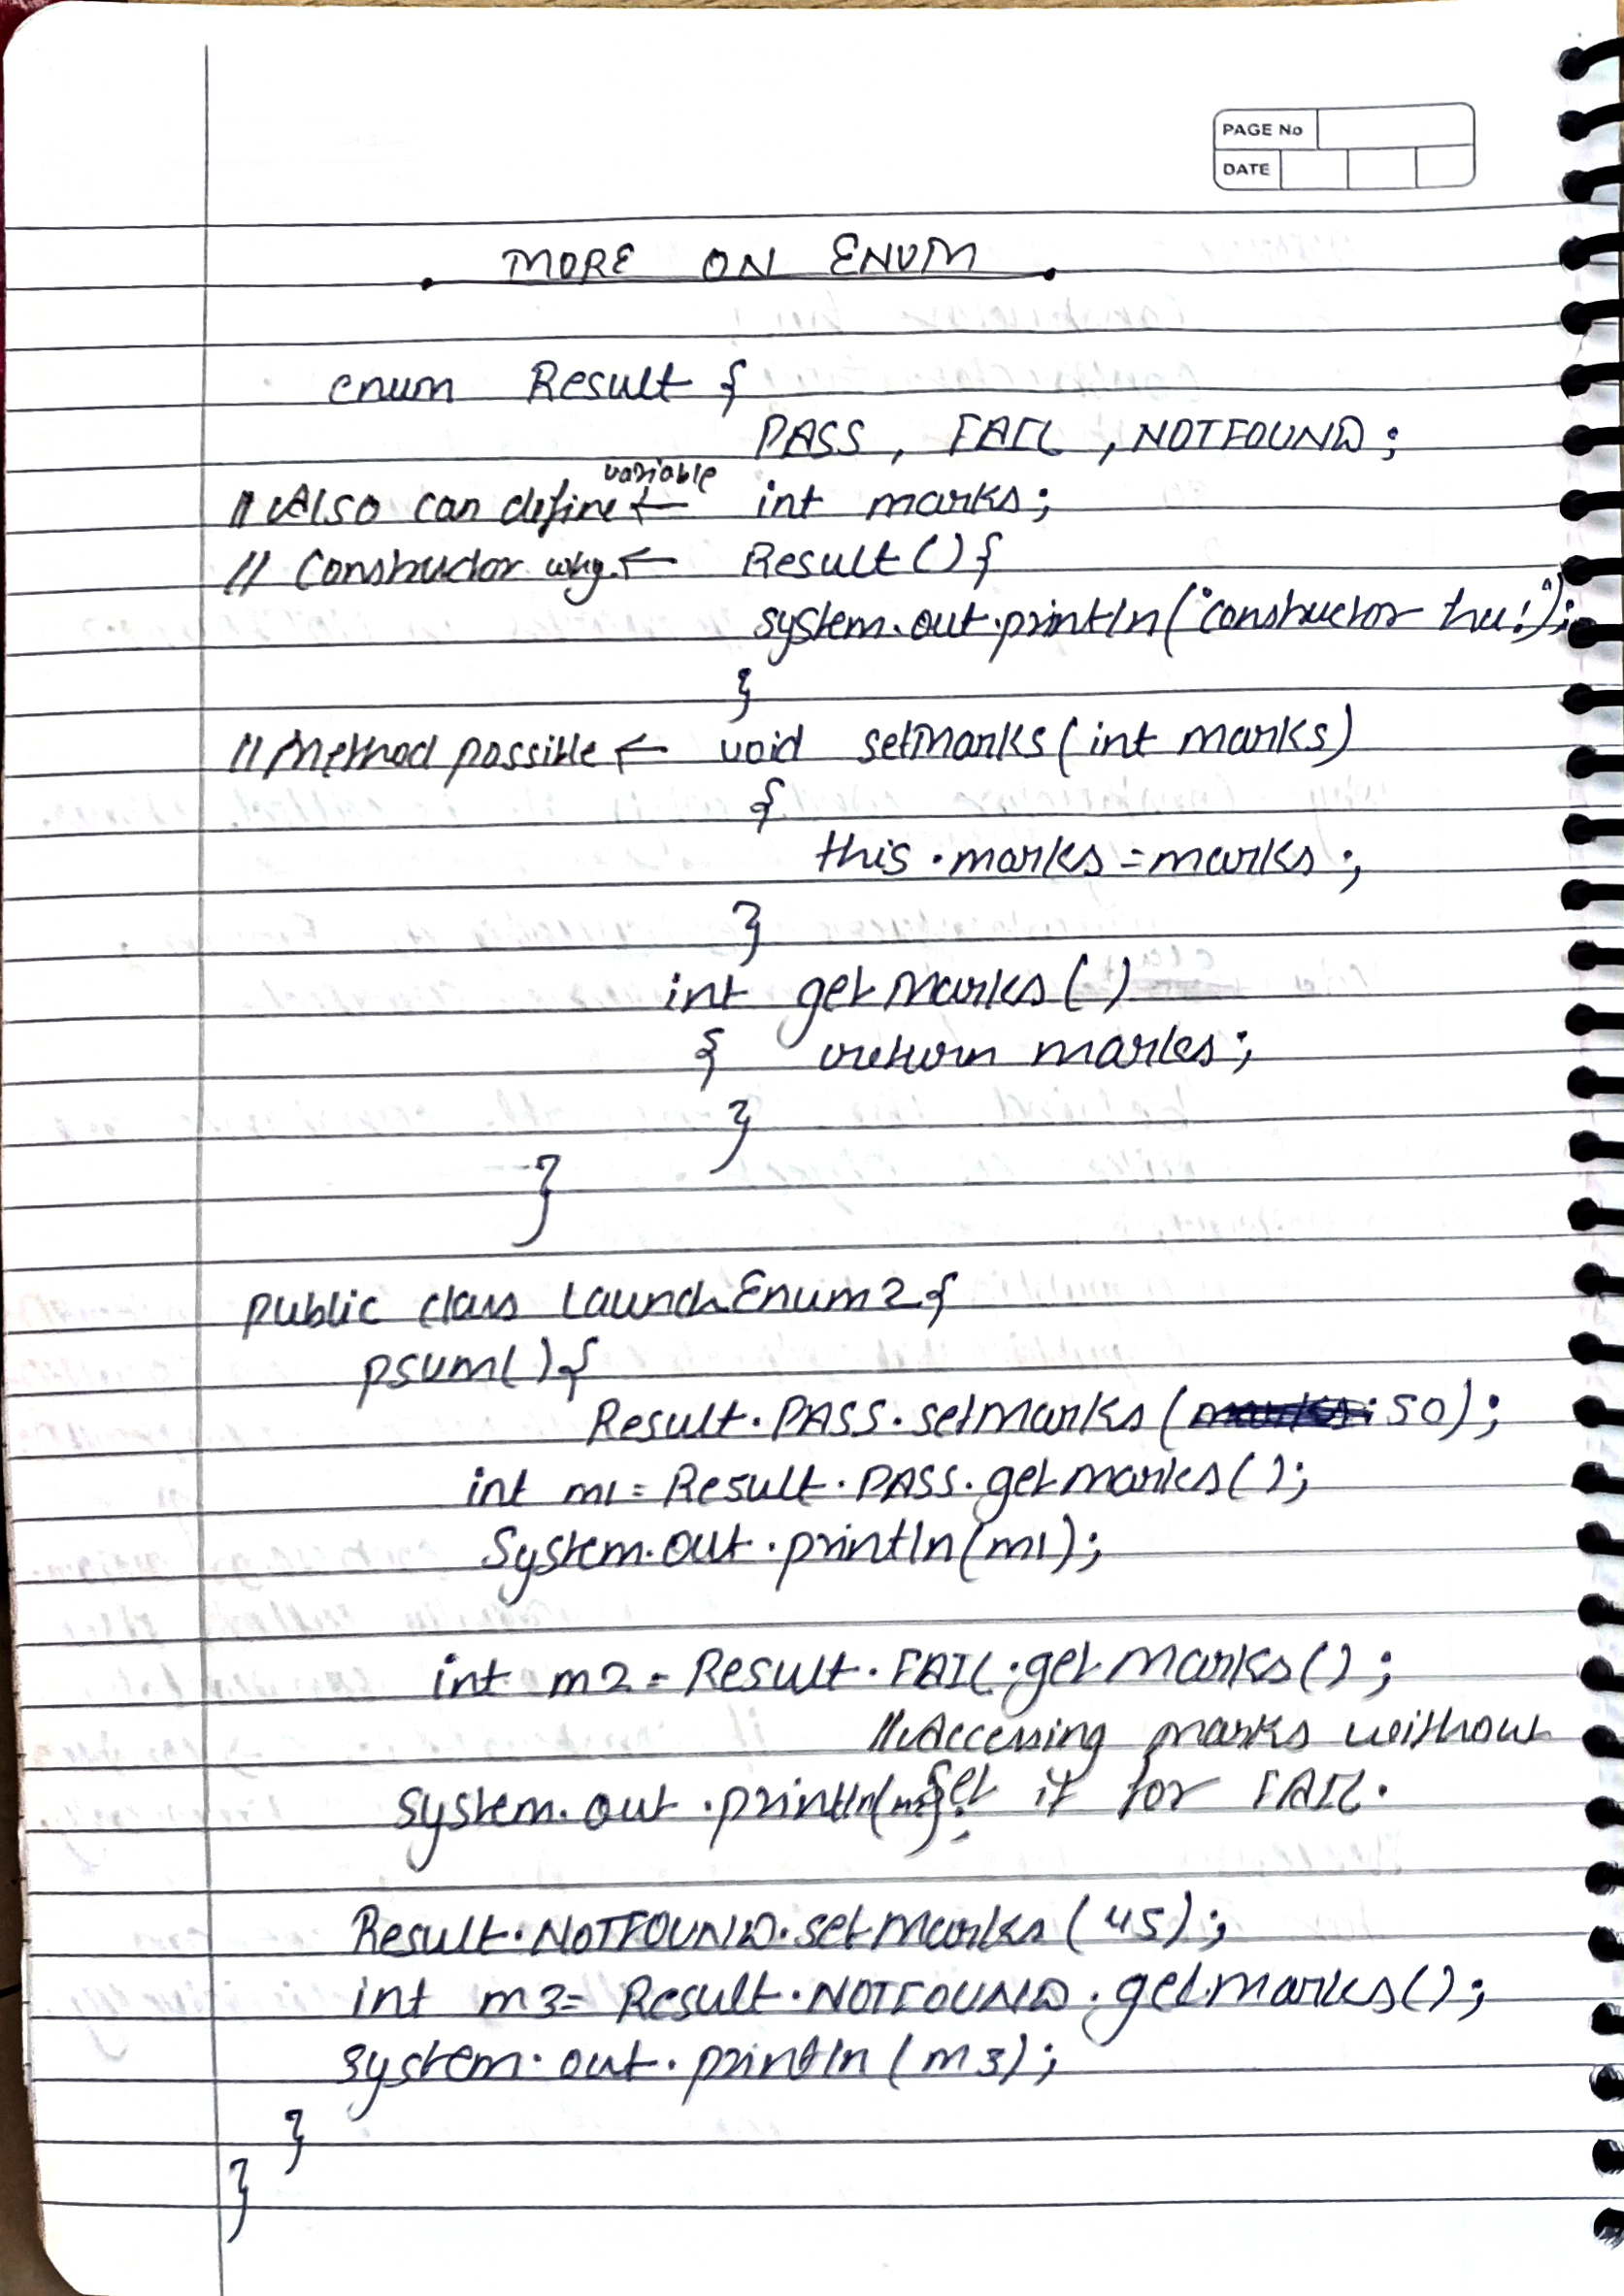 PAGE No
DATE
MORE ON ENUM
enum Result {
PASS, FAIL, NOTFOUND;
variable
// Also can define ← int marks;
// Constructor why. ← Result () {
system.out.println("constructor hu!");
}
// Method possible ← void setMarks (int marks)
{
this.marks = marks;
}
int getMarks ()
{ return marks;
}
}
public class LaunchEnum2 {
psvm() {
Result.PASS.setMarks (50);
int m1 = Result.PASS.getmarks();
System.out.println(m1);
int m2 = Result.FAIL.getMarks();
// Accessing marks without
system.out.println(m2); set it for FAIL.
Result.NOTFOUND.setMarks (45);
int m3 = Result.NOTFOUND.getmarks();
system.out.println (m3);
}
}